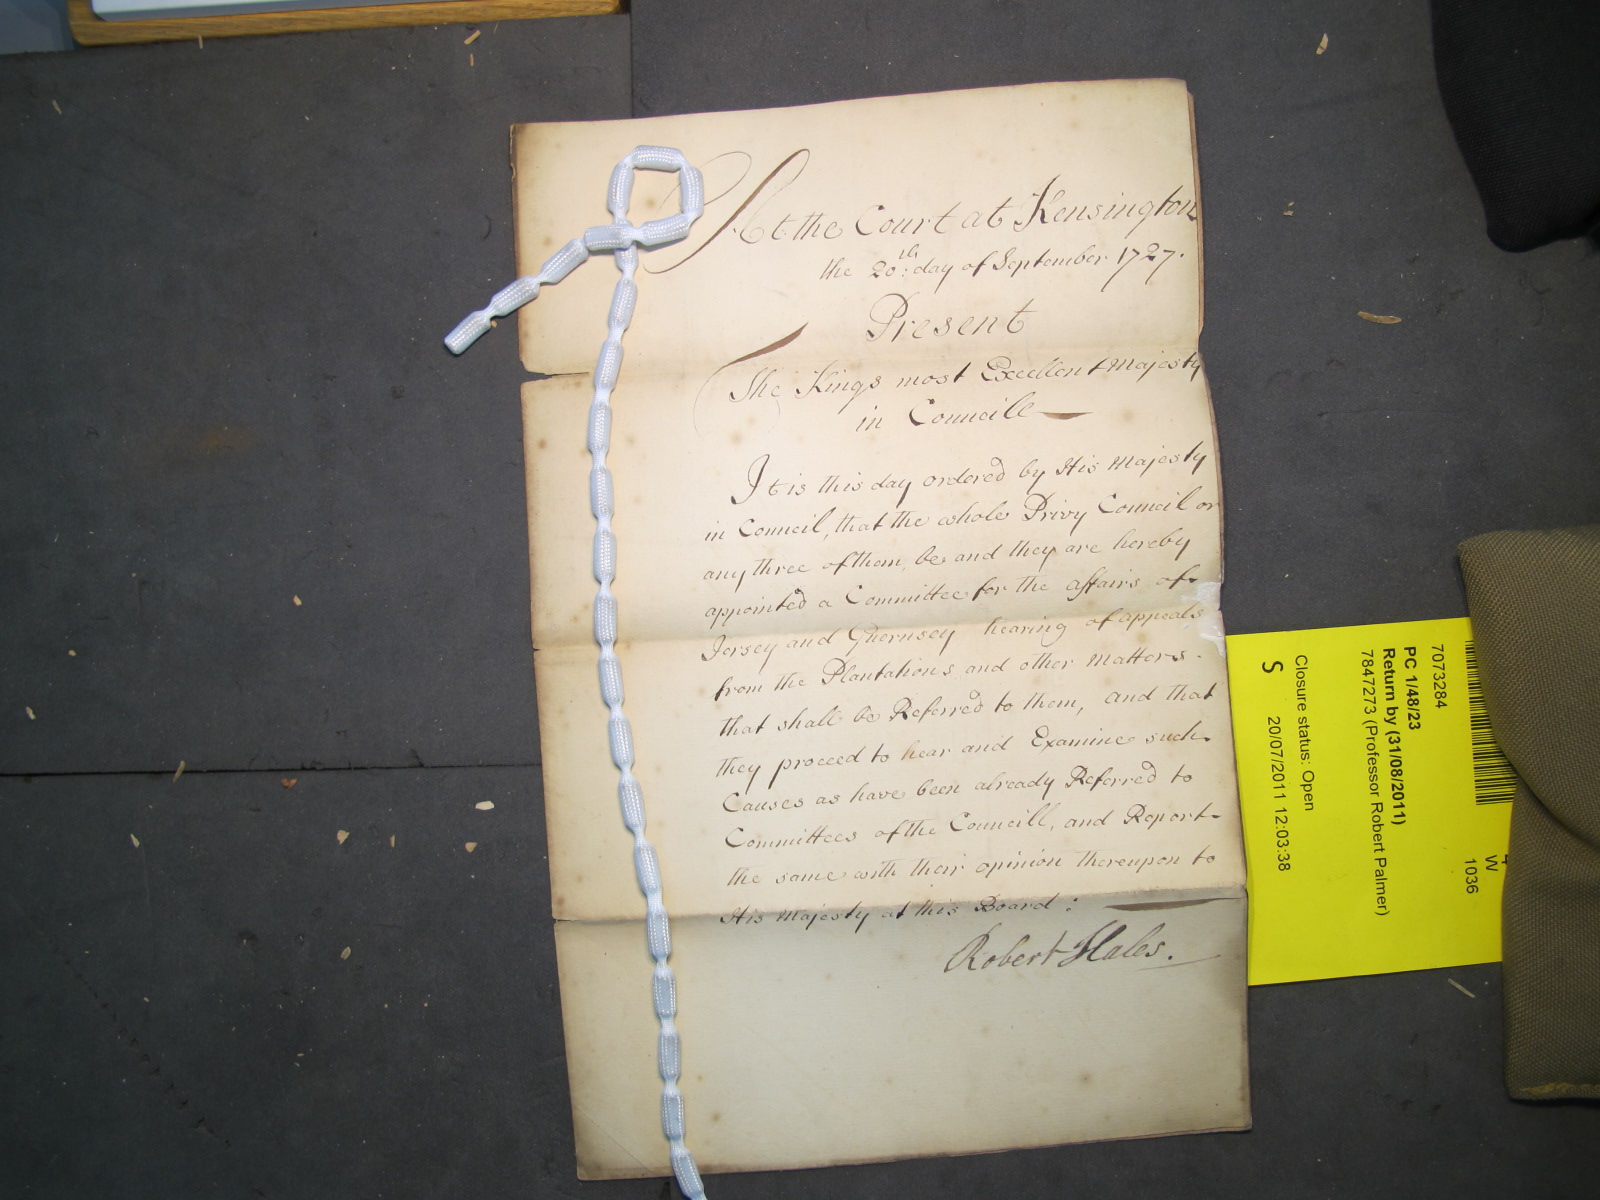 At the Court at Kensington
the 20th: day of September 1727.
Present
The Kings most Excellent Majesty
in Councile
It is this day ordered by His Majesty
in Council, that the whole Privy Council or
any three of them, be and they are hereby
appointed a Committee for the affairs of
Jersey and Guernsey hearing of appeals
from the Plantations and other Matters
that shall be Referred to them, and that
they proceed to hear and Examine such
Causes as have been already Referred to
Committees of the Councill, and Report
the same with their opinion thereupon to
His Majesty at this Board:
Robert Hales.
7073284
PC 1/48/23
Return by (31/08/2011)
7847273 (Professor Robert Palmer)
Closure status: Open
S 20/07/2011 12:03:38
W
1036